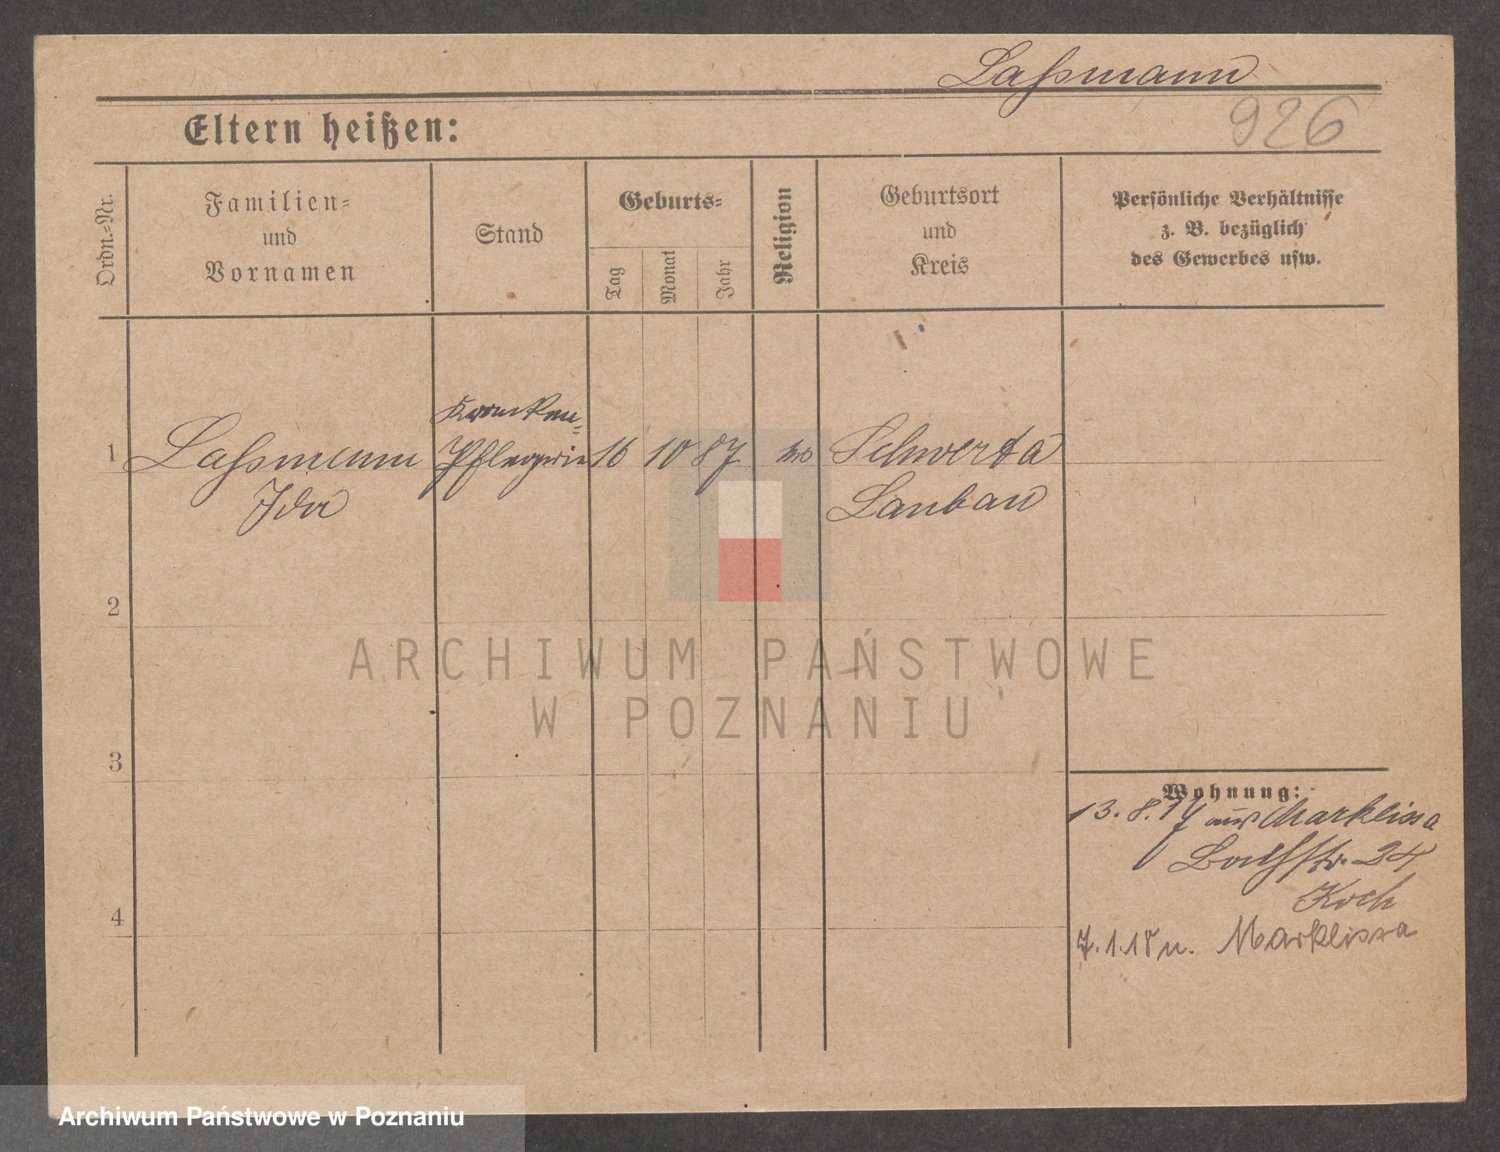 Laßmann
926
Eltern heißen:
Ordn.-Nr.
Familien-
und
Vornamen
Stand
Geburts-
Tag
Monat
Jahr
Religion
Geburtsort
und
Kreis
Persönliche Verhältnisse
z. B. bezüglich
des Gewerbes usw.
1
Laßmann
Ida
Kranken-
Pflegerin
16
10
87
Schwerta
Lauban
2
3
4
Wohnung:
13. 8. 17 aus Marklissa
24
Koch
7. 1. 18 n. Marklissa
ARCHIWUM PAŃSTWOWE
W POZNANIU
Archiwum Państwowe w Poznaniu